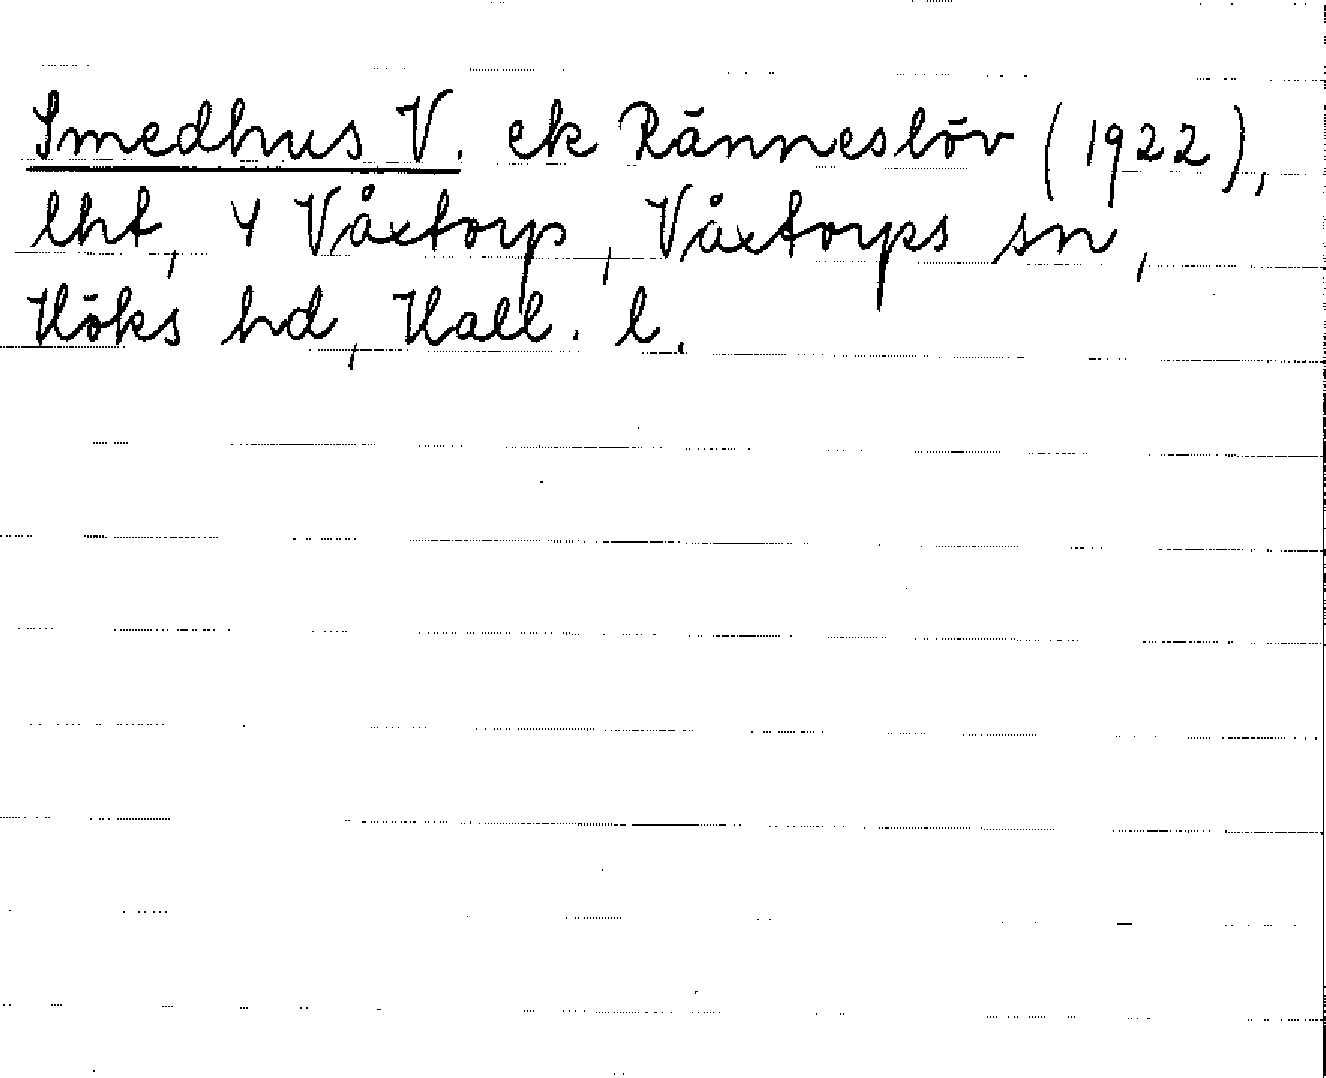 Smedhus V. ek Ränneslöv (1922),
lht, Y Våxtorp, Våxtorps sn,
Höks hd, Hall. l.